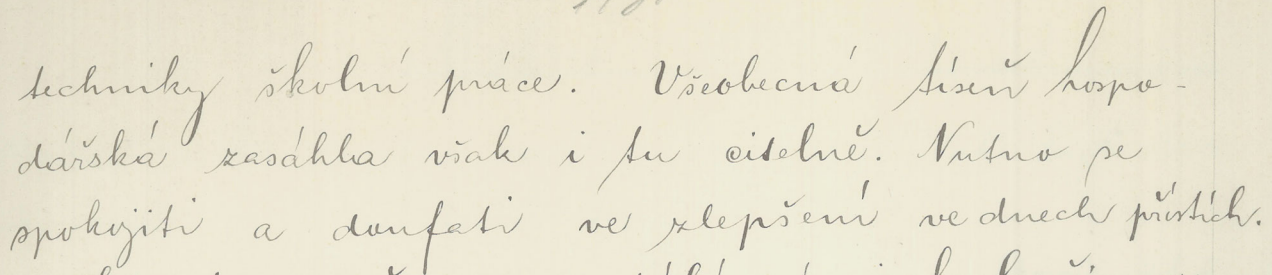 techniky školní práce. Všeobecná tíseň hospo-
dářská zasáhla však i tu citelně. Nutno se
spokojiti a doufati ve zlepšení ve dnech příštích.